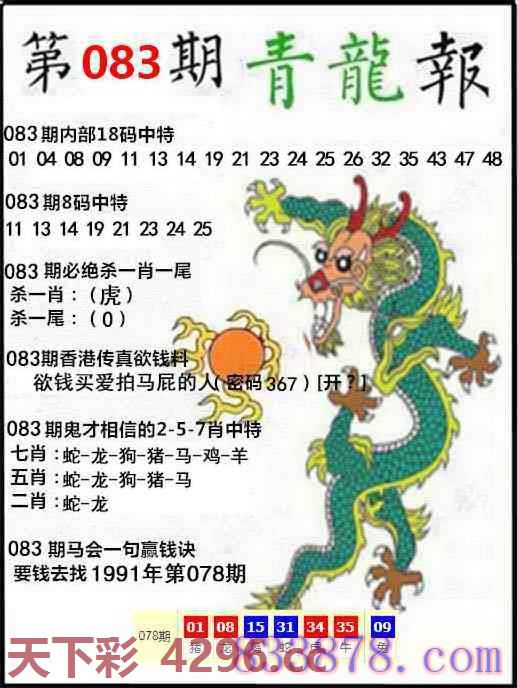 第083期 青龍報
083期内部18码中特
01 04 08 09 11 13 14 19 21 23 24 25 26 32 35 43 47 48
083期8码中特
11 13 14 19 21 23 24 25
083期必绝杀一肖一尾
杀一肖：(虎)
杀一尾：(0)
083期香港传真欲钱料
欲钱买爱拍马屁的人(密码367)[开?]
083期鬼才相信的2-5-7肖中特
七肖：蛇-龙-狗-猪-马-鸡-羊
五肖：蛇-龙-狗-猪-马
二肖：蛇-龙
083期马会一句赢钱诀
要钱去找1991年第078期
078期 01 08 15 31 34 35 09
猪 龙 蛇 虎 牛 兔
天下彩 4296.cc
838878.com